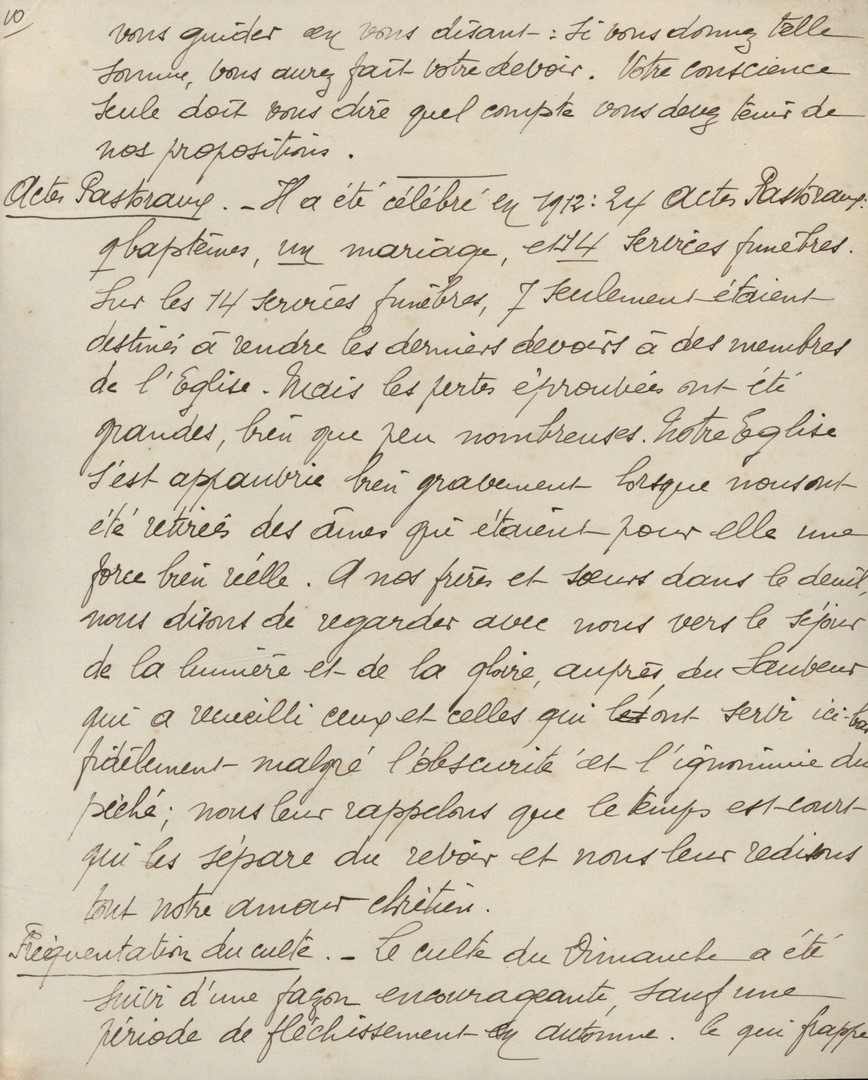 10
vous guider en vous disant : si vous donnez telle
somme, vous aurez fait votre devoir. Votre conscience
seule doit vous dire quel compte vous devez tenir de
nos propositions.
Actes Pastoraux. - Il a été célébré en 1912 : 24 Actes Pastoraux :
9 baptêmes, un mariage, et 14 services funèbres.
Sur les 14 services funèbres, 7 seulement étaient
destinés à rendre les derniers devoirs à des membres
de l'Eglise. Mais les pertes éprouvées ont été
grandes, bien que peu nombreuses. Notre Eglise
s'est appauvrie bien gravement lorsque nous ont
été retirées des âmes qui étaient pour elle une
force bien réelle. A nos frères et soeurs dans le deuil,
nous disons de regarder avec nous vers le séjour
de la lumière et de la gloire, auprès du Sauveur
qui a recueilli ceux et celles qui l'ont servi ici-bas
fidèlement malgré l'obscurité et l'ignominie du
péché ; nous leur rappelons que le temps est court
qui les sépare du revoir et nous leur redisons
tout notre amour chrétien.
Fréquentation du culte. - Le culte du Dimanche a été
suivi d'une façon encourageante, sauf une
période de fléchissement en automne. Ce qui frappe